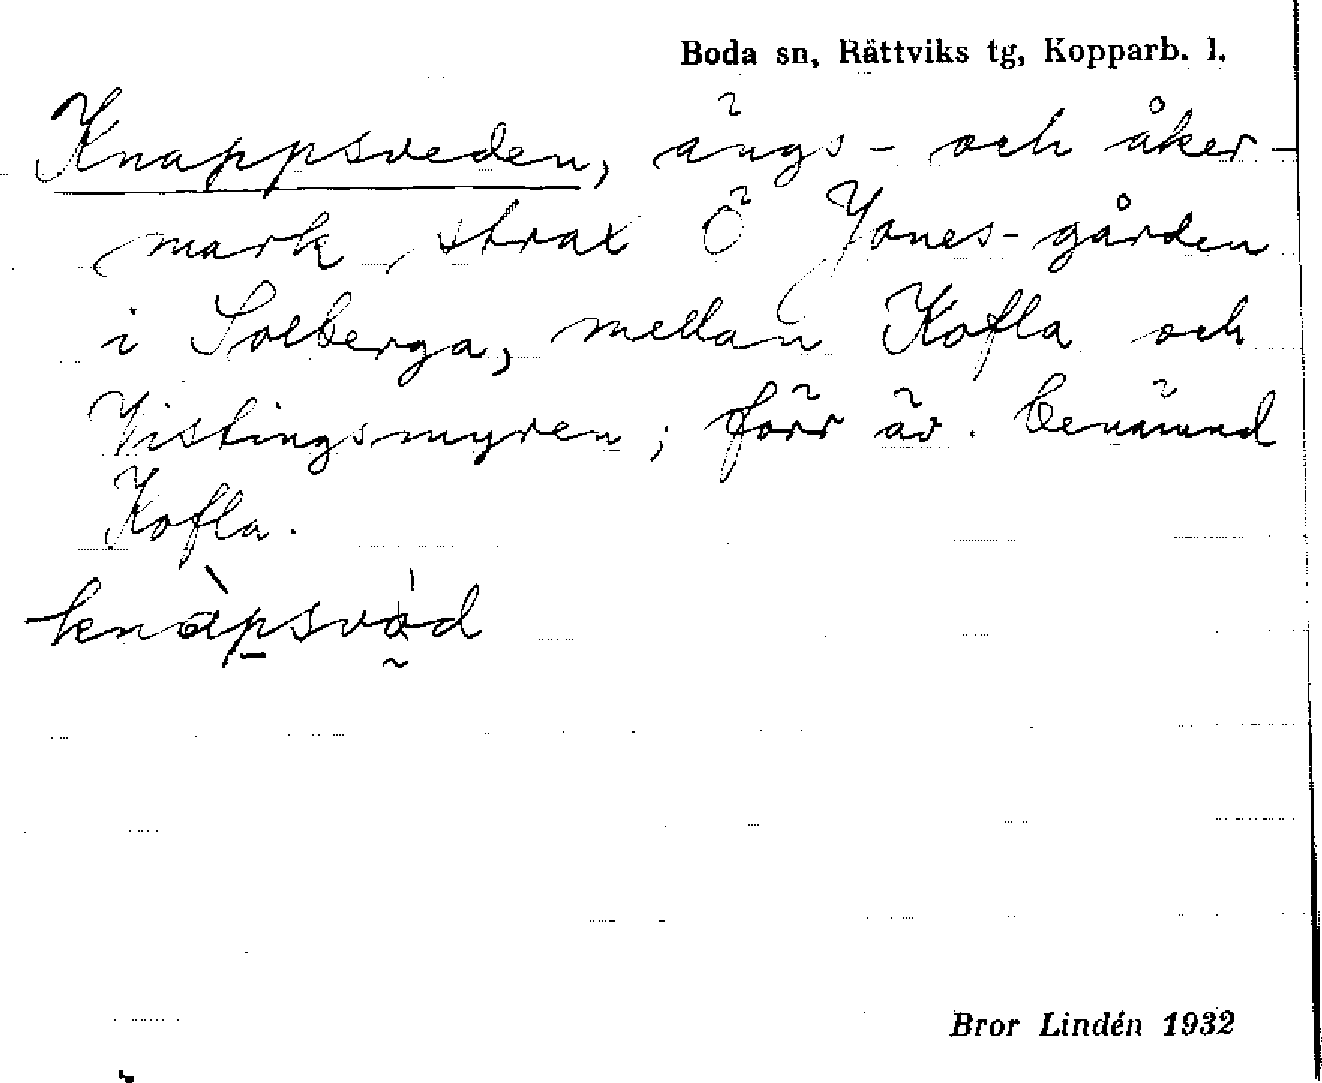 Boda sn, Rättviks tg, Kopparb. l.
Knappsveden, ängs- och åker-
mark, strax Ö Jones-gården
i Solberga, mellan Kofla och
Vistingsmyren; förr äv. benämnd
Kofla.
knàpsvád
Bror Lindén 1932